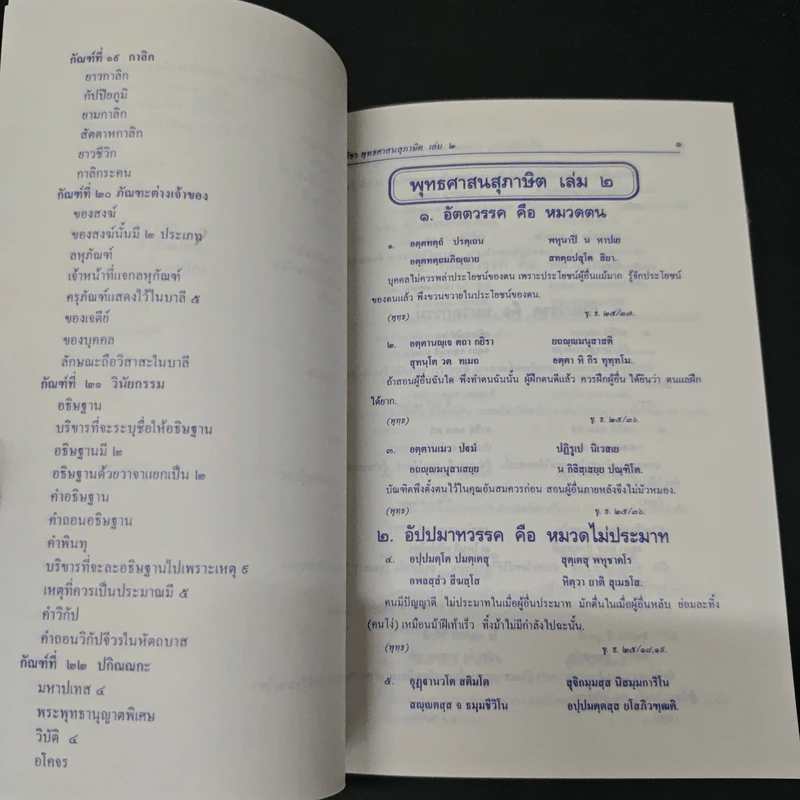 กัณฑ์ที่ ๑๙ กาลิก
ยาวกาลิก
กัปปิยภูมิ
ยามกาลิก
สัตตาหกาลิก
ยาวชีวิก
กาลิกระคน
กัณฑ์ที่ ๒๐ ภัณฑะต่างเจ้าของ
ของสงฆ์
ของสงฆ์นั้นมี ๒ ประเภท
ลหุภัณฑ์
เจ้าหน้าที่แจกลหุภัณฑ์
ครุภัณฑ์แสดงไว้ในบาลี ๕
ของเจดีย์
ของบุคคล
ลักษณะถือวิสาสะในบาลี
กัณฑ์ที่ ๒๑ วินัยกรรม
อธิษฐาน
บริขารที่จะระบุชื่อให้อธิษฐาน
อธิษฐานมี ๒
อธิษฐานด้วยวาจาแยกเป็น ๒
คำอธิษฐาน
คำถอนอธิษฐาน
คำพินทุ
บริขารที่จะละอธิษฐานไปเพราะเหตุ ๙
เหตุที่ควรเป็นประมาณมี ๕
คำวิกัป
คำถอนวิกัปจีวรในหัตถบาส
กัณฑ์ที่ ๒๒ ปกิณณกะ
มหาปเทส ๔
พระพุทธานุญาตพิเศษ
วิบัติ ๔
อโคจร
พุทธศาสนสุภาษิต เล่ม ๒ ๑
พุทธศาสนสุภาษิต เล่ม ๒
๑. อัตตวรรค คือ หมวดตน
๑. อตฺตทตฺถํ ปรตฺเถน พหุนาปิ น หาปเย
อตฺตทตฺถมภิญฺญาย สทตฺถปสุโต สิยา.
บุคคลไม่ควรพล่าประโยชน์ของตน เพราะประโยชน์ผู้อื่นแม้มาก รู้จักประโยชน์
ของตนแล้ว พึงขวนขวายในประโยชน์ของตน.
(พุทฺธ) ขุ. ธ. ๒๕/๓๗.
๒. อตฺตานญฺเจ ตถา กยิรา ยถญฺญมนุสาสติ
สุทนฺโต วต ทเมถ อตฺตา หิ กิร ทุทฺทโม.
ถ้าสอนผู้อื่นฉันใด พึงทำตนฉันนั้น ผู้ฝึกตนดีแล้ว ควรฝึกผู้อื่น ได้ยินว่า ตนแลฝึก
ได้ยาก.
(พุทฺธ) ขุ. ธ. ๒๕/๓๖.
๓. อตฺตานเมว ปฐมํ ปฏิรูเป นิเวสเย
อถญฺญมนุสาเสยฺย น กิลิสฺเสยฺย ปณฺฑิโต.
บัณฑิตพึงตั้งตนไว้ในคุณอันสมควรก่อน สอนผู้อื่นภายหลังจึงไม่มัวหมอง.
(พุทฺธ) ขุ. ธ. ๒๕/๓๖.
๒. อัปปมาทวรรค คือ หมวดไม่ประมาท
๔. อปฺปมตฺโต ปมตฺเตสุ สุตฺเตสุ พหุชาคโร
อพลสฺสํว สีฆสฺโส หิตฺวา ยาติ สุเมธโส.
คนมีปัญญาดี ไม่ประมาทในเมื่อผู้อื่นประมาท มักตื่นในเมื่อผู้อื่นหลับ ย่อมละทิ้ง
(คนโง่) เหมือนม้าฝีเท้าเร็ว ทิ้งม้าไม่มีกำลังไปฉะนั้น.
(พุทฺธ) ขุ. ธ. ๒๕/๑๘,๑๙.
๕. อุฏฺฐานวโต สติมโต สุจิกมฺมสฺส นิสมฺมการิโน
สญฺญตสฺส จ ธมฺมชีวิโน อปฺปมตฺตสฺส ยโสภิวฑฺฒติ.